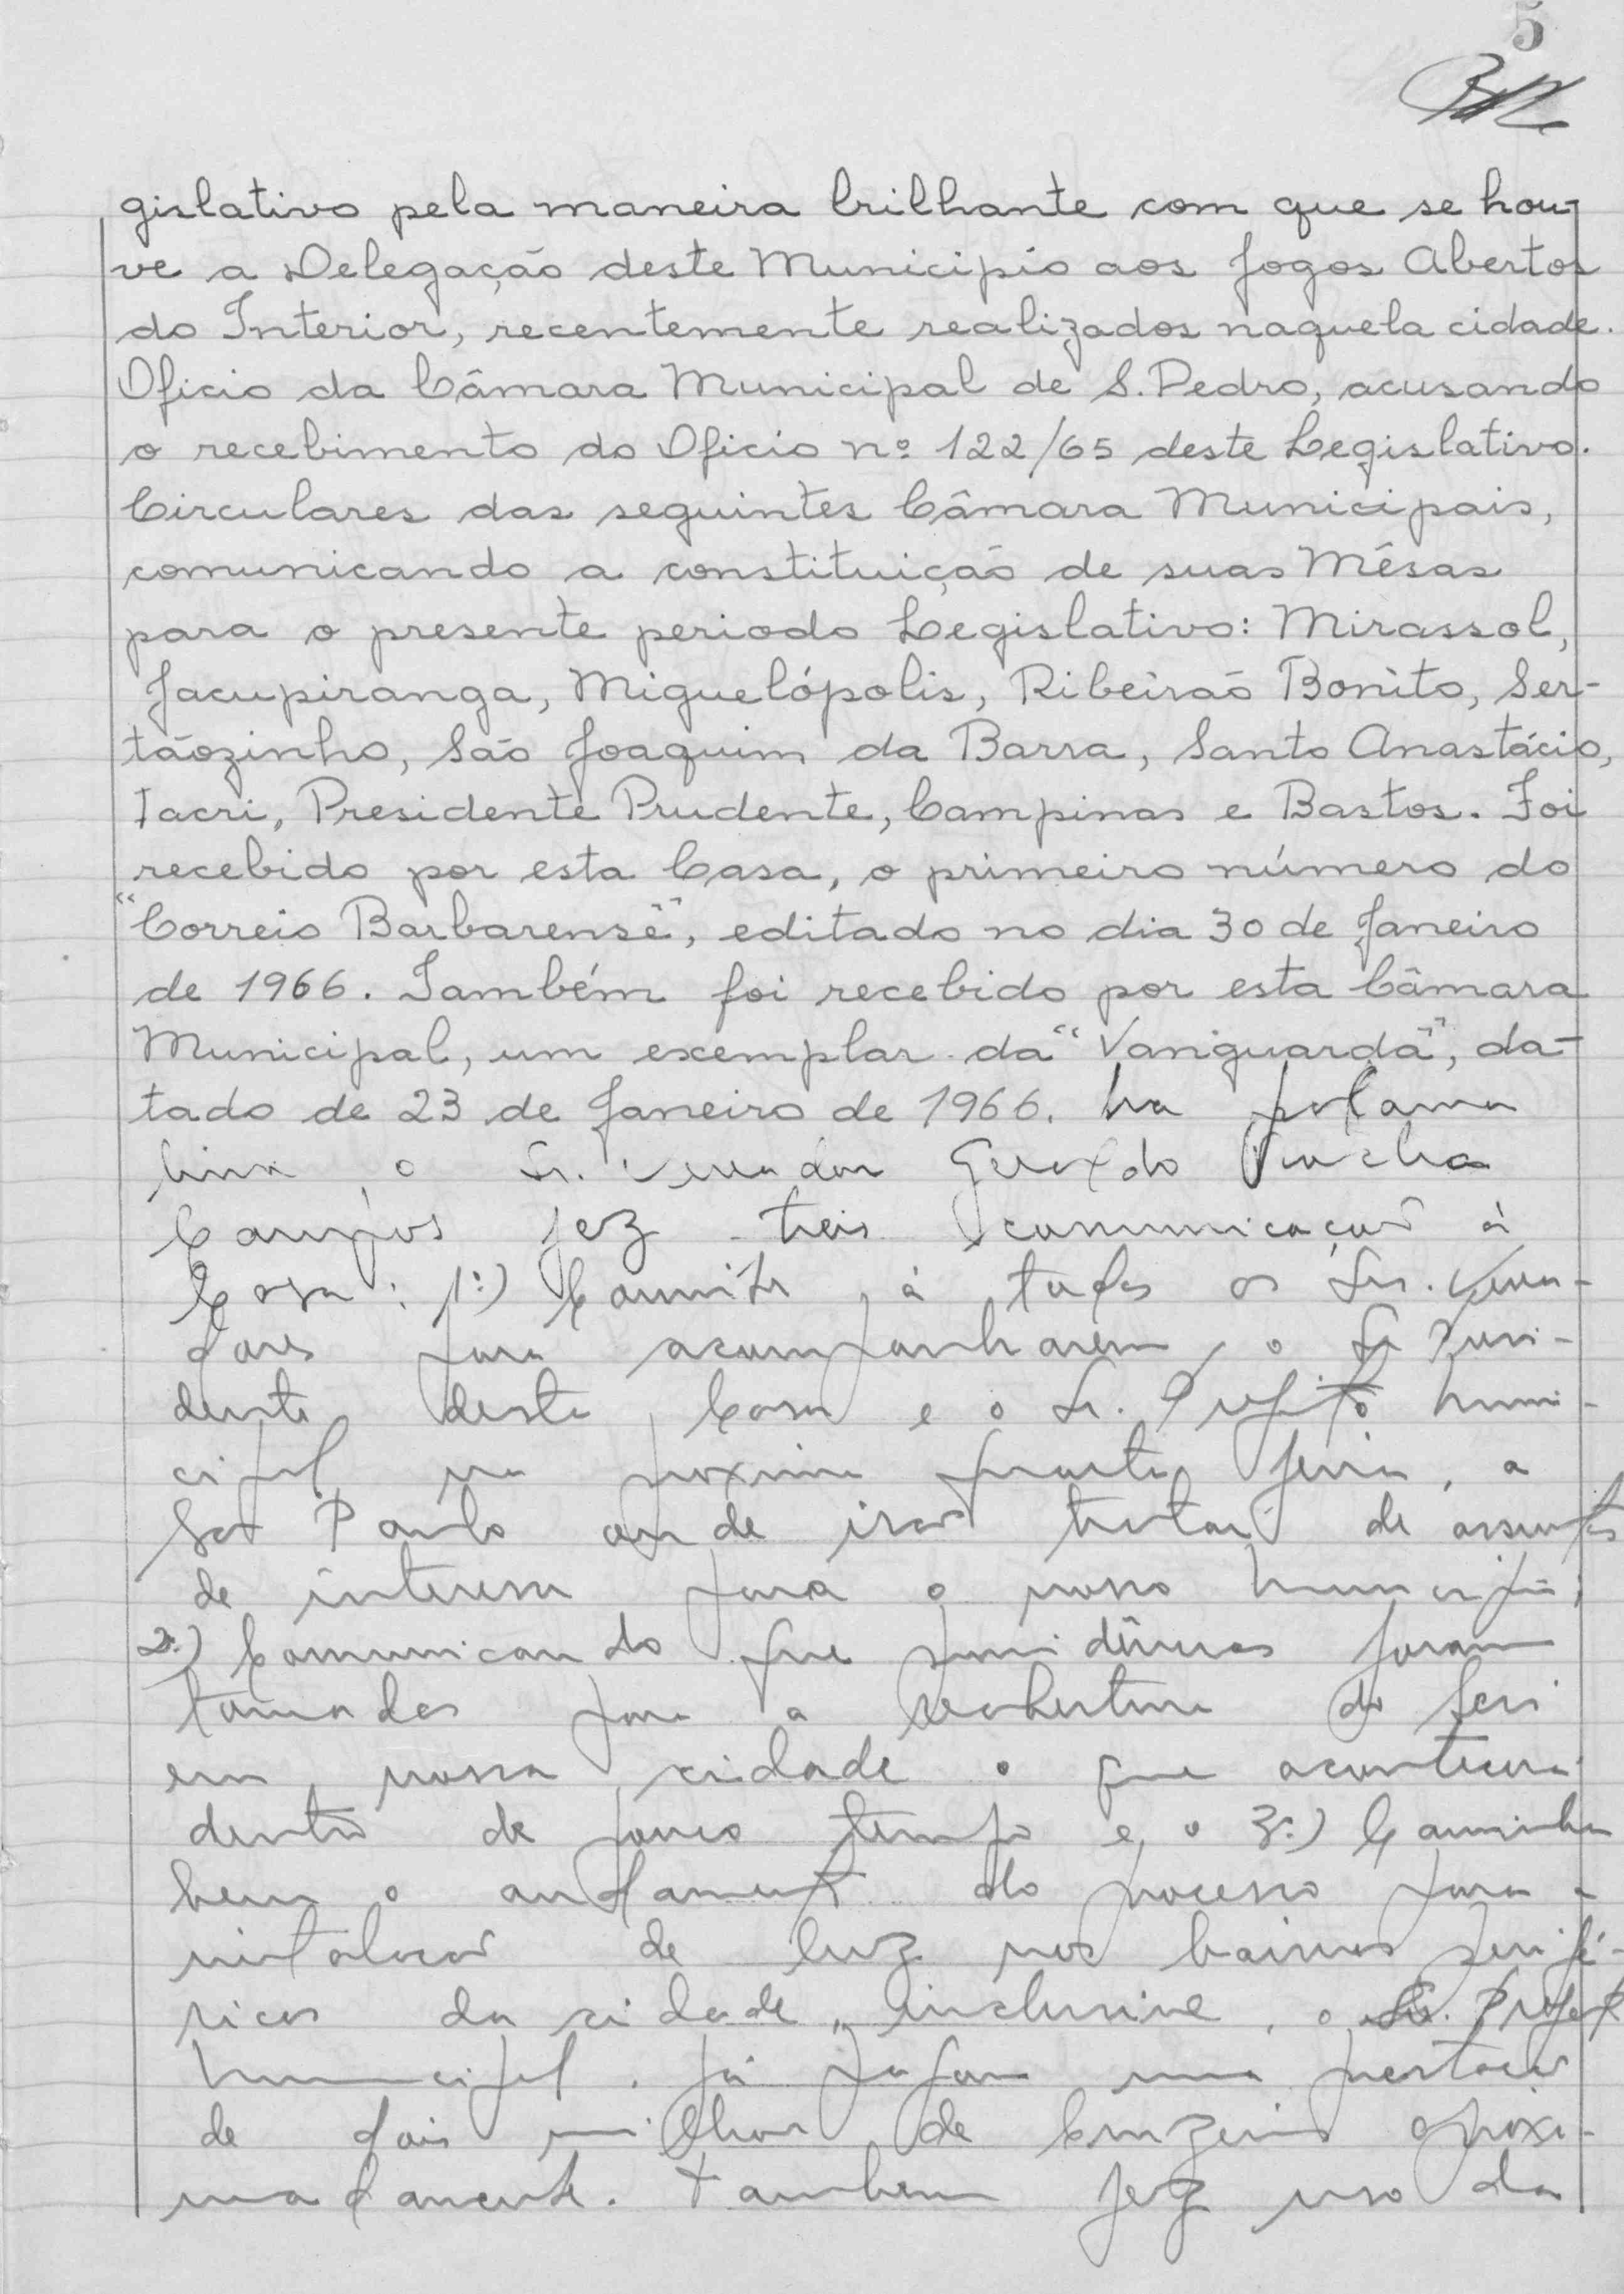 5
gislativo pela maneira brilhante com que se hou-
ve a Delegação deste Municipio aos Jogos Abertos
do Interior, recentemente realizados naquela cidade.
Oficio da Câmara Municipal de S. Pedro, acusando
o recebimento do Oficio nº 122/65 deste Legislativo.
Circulares das seguintes Câmara Municipais,
comunicando a constituição de suas Mêsas
para o presente periodo Legislativo: Mirassol,
Jacupiranga, Miguelópolis, Ribeirão Bonito, Ser-
tãozinho, São Joaquim da Barra, Santo Anastácio,
Iacri, Presidente Prudente, Campinas e Bastos. Foi
recebido por esta Casa, o primeiro número do
"Correio Barbarense", editado no dia 30 de Janeiro
de 1966. Também foi recebido por esta Câmara
Municipal, um exemplar da "Vanguarda", da-
tado de 23 de Janeiro de 1966. Na
o Sr. Vereador Geraldo Rocha
Campos fez treis comunicações á
Casa: 1º) Convite á todos os Srs. Verea-
dores para acompanharem, o Sr Presi-
dente desta Casa e o Sr. Prefeito Muni-
cipal na proxima quarta feira, a
São Paulo onde irão tratar de assuntos
de interesse para o nosso Municipio;
2º) Comunicando que providências foram
tomadas para a reabertura do Sesi
em nossa cidade o que acontecerá
dentro de pouco tempo e o 3º) Caminha
bem o andamento do processo para a
instalação de luz nos bairros perifé-
ricos da cidade, inclusive, o Sr. Prefeito
Municipal, já pagou uma prestação
de dois milhões de Cruzeiros aproxi-
madamente. Tambem fez uso da